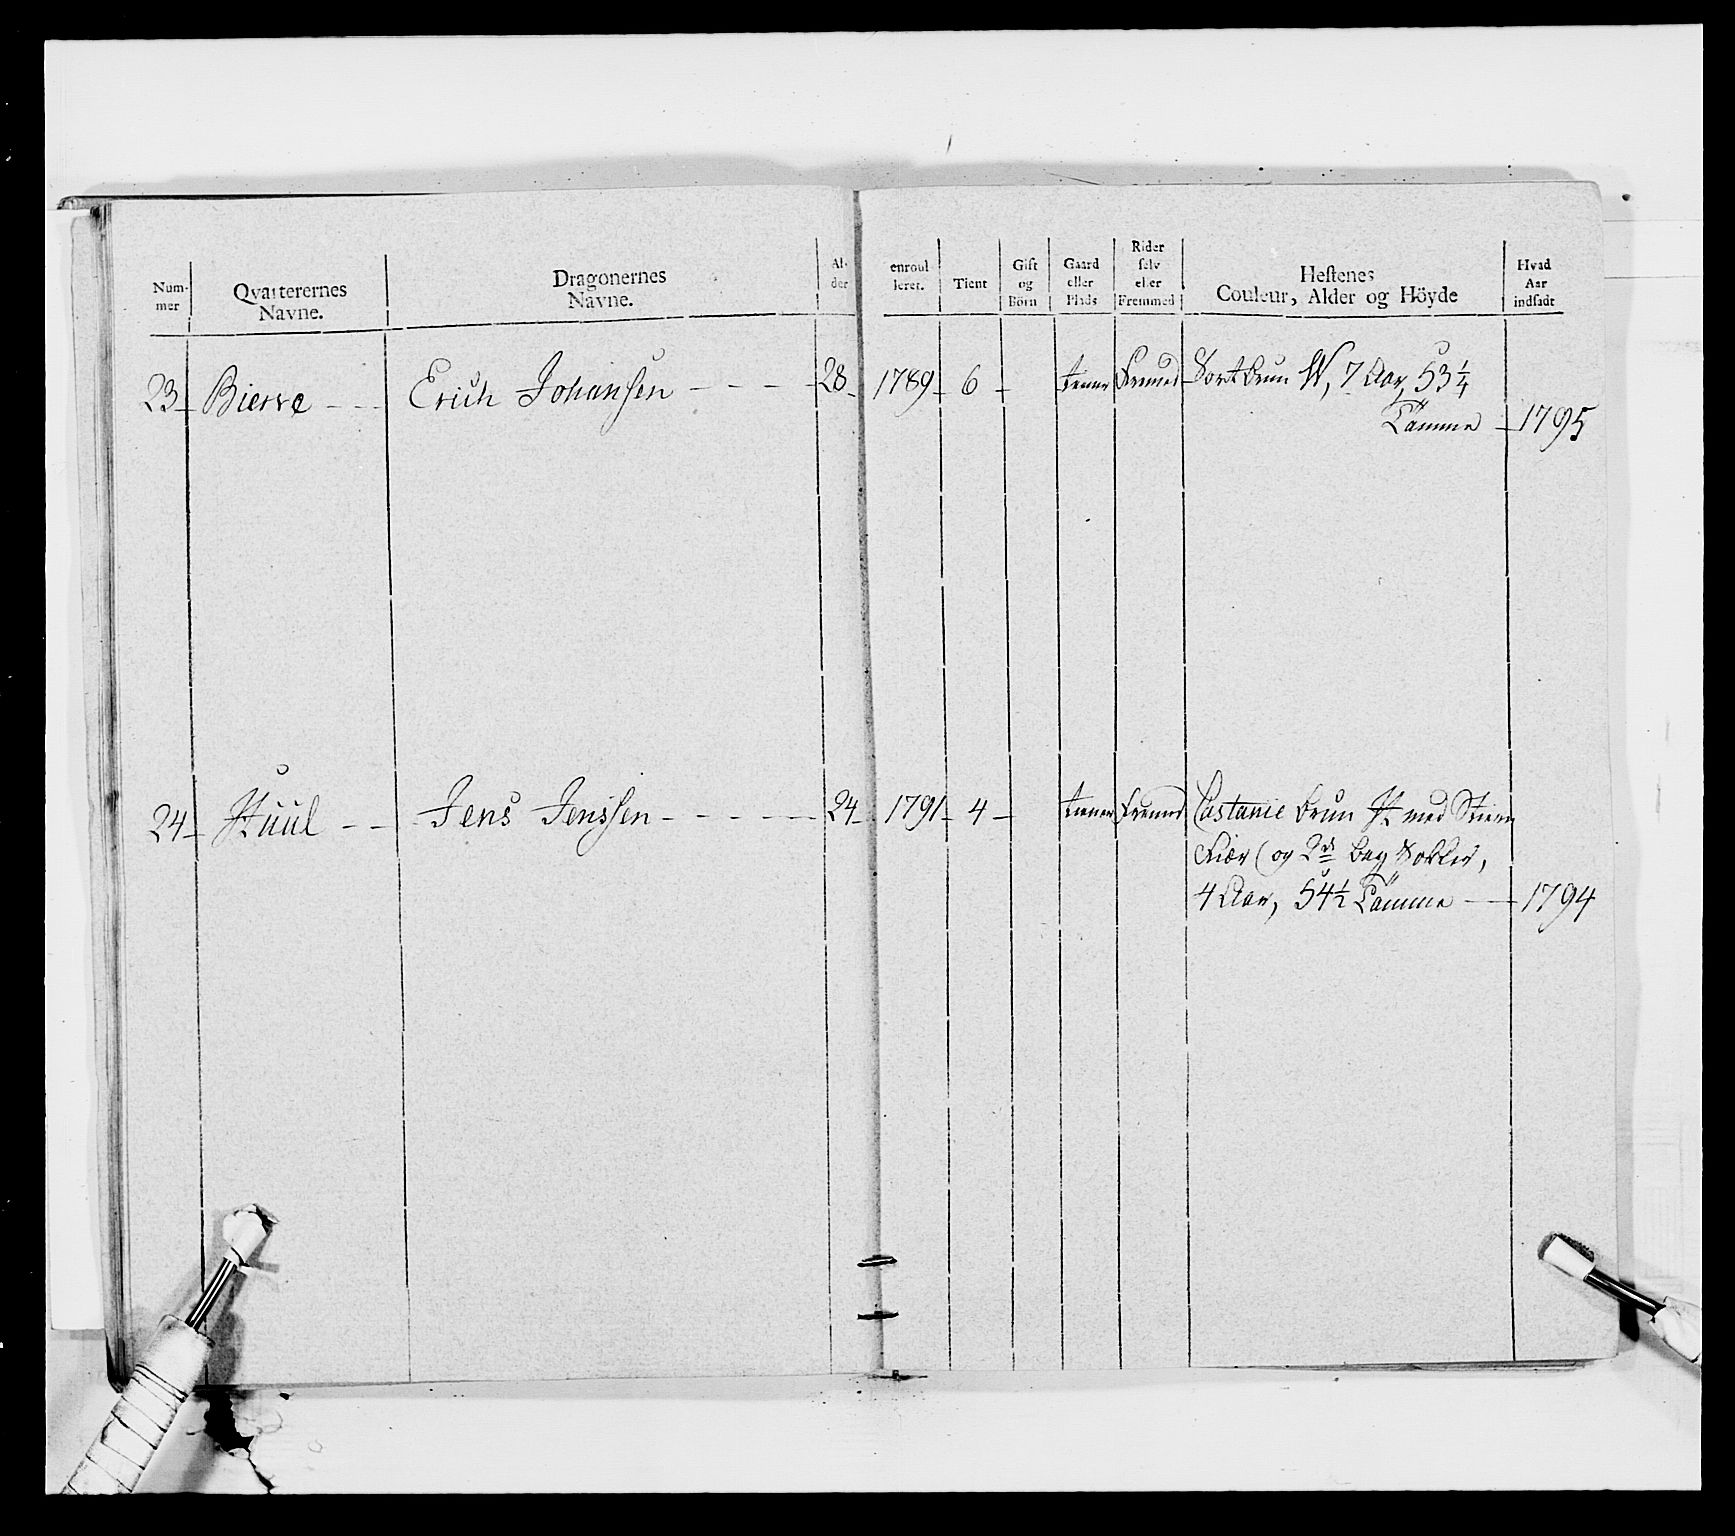 Num-
mer
Qvarterernes
Navne.
Dragonernes
Navne.
Al-
der
enroul
leret.
Tient
Gift
og
Börn
Gaard
eller
Plads
Rider
selv
eller
Fremmed
Hestenes
Couleur, Alder og Höyde
Hvad
Aar
indsadt
23 Bierve - - - Erich Johansen - - - - 28 1789 6 - tiener Fremed Sortbrun W, 7 Aar, 53 1/4
Tömme - 1795
24 Jens Jenssen - - - - - 24 1791 4 - tiener Fremed Castanie brun med Stiern
og 2de bag Sokker,
4 Aar, 54 1/2 Tömme - 1794